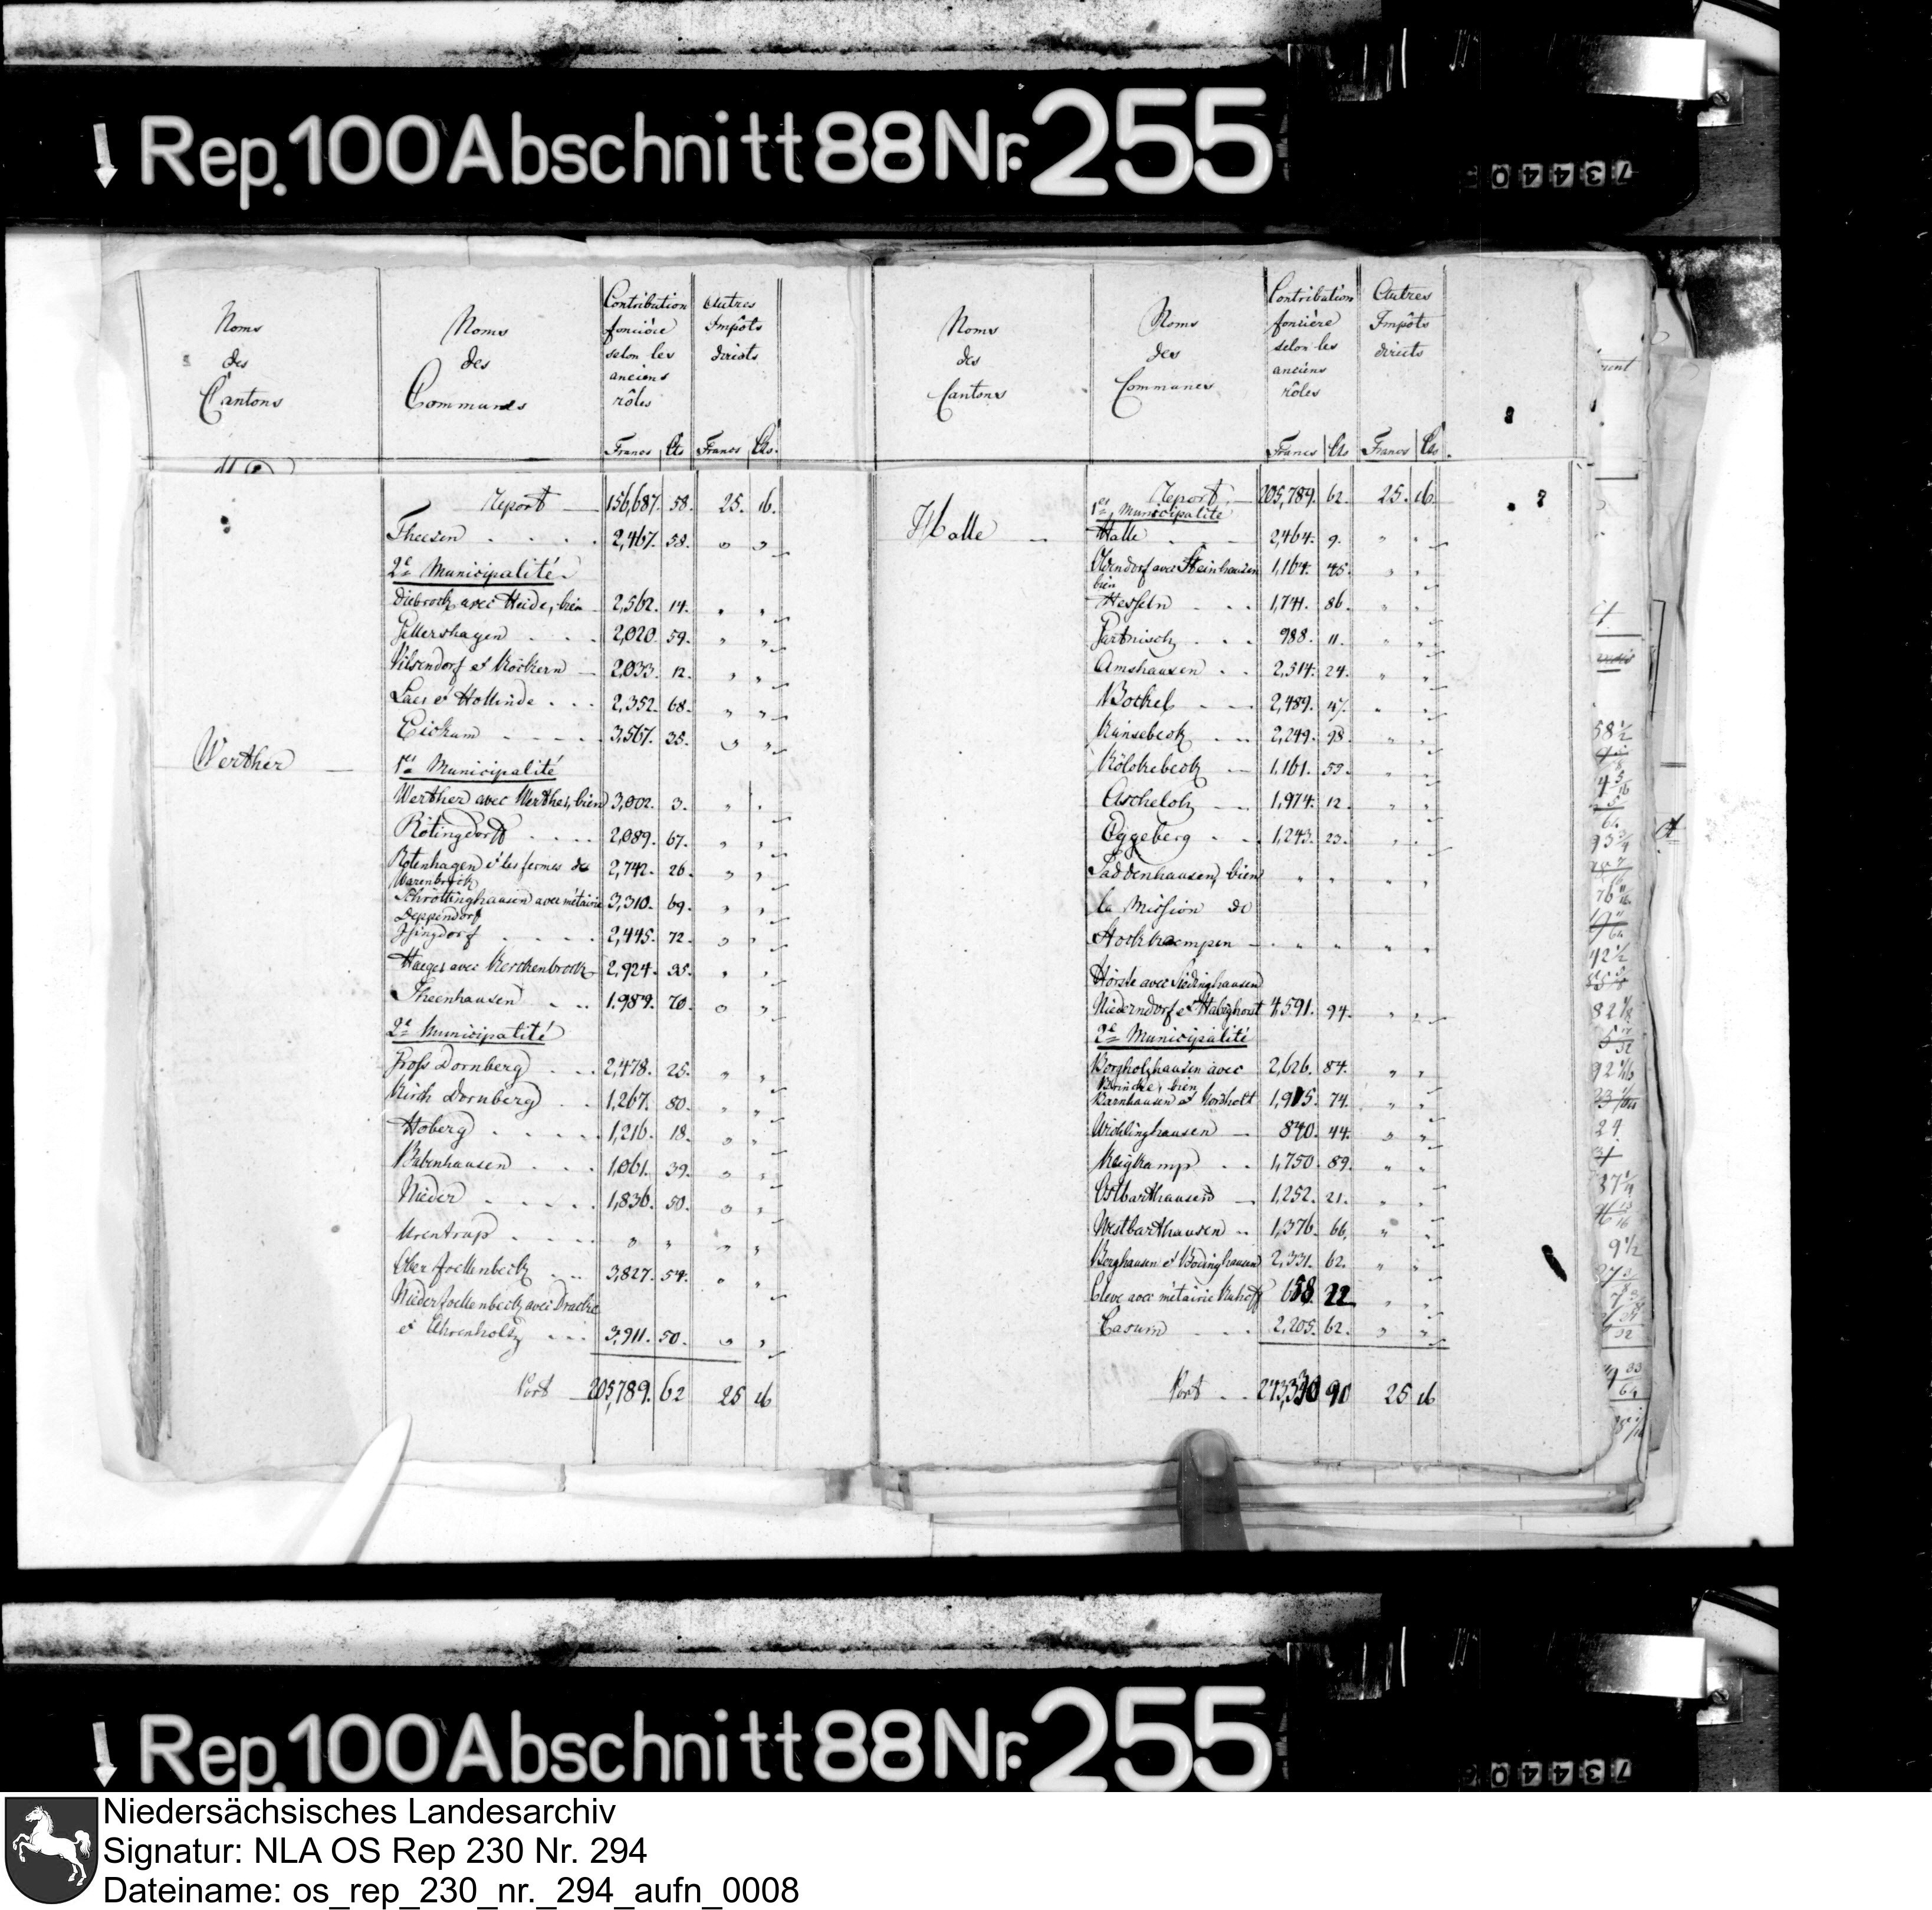 Rep. 100 Abschnitt 88 Nr. 255
73440
Noms
des
Cantons
Noms
des
Communes
Contribution
foncière
selon les
anciens
rôles
Autres
Impôts
directs
Francs Cts Francs Cts.
Report 156,687. 58. 25. 16.
Theesen 2,467. 58. " "
2e Municipalité
Diebrock avec Heide, bien 2,562. 14. " "
Jöllershagen 2,020. 59. " "
Vilsendorf et Köckern 2,033. 12. " "
Laer et Hollinde 2,352. 68. " "
Eickum 3,567. 35. " "
Werther
1re Municipalité
Werther avec Werther, bien 3,002. 3. " "
Rötingdorff 2,089. 67. " "
Rotenhagen et les fermes de 2,742. 26. " "
Warenbrock
Schröttinghausen avec métairie 3,310. 69. " "
Deppendorf
Isingdorf 2,445. 72. " "
Haeger avec Kerckenbrock 2,924. 35. " "
Theenhausen 1,989. 70. " "
2e Municipalité
Gross Dornberg 2,478. 25. " "
Kirch Dornberg 1,267. 80. " "
Hoberg 1,216. 18. " "
Babenhausen 1,061. 39. " "
Nieder 1,836. 50. " "
Urentrup " " " "
Ober Joellenbeck 3,827. 54. " "
Nieder Joellenbeck avec Dracke
et Ahrenholtz 3,911. 50. " "
Port 205,789. 62 25 16
Noms
des
Cantons
Noms
des
Communes
Contribution
foncière
selon les
anciens
rôles
Autres
Impôts
directs
Francs Cts Francs Cts
Report 205,789. 62. 25. 16.
Halle
1re Municipalité
Halle 2,464. 9. " "
Oldendorf avec Steinhausen 1,164. 45. " "
bien
Hesseln 1,741. 86. " "
Gartnisch 988. 11. " "
Amshausen 2,514. 24. " "
Bockel 2,489. 47. " "
Künsebeck 2,249. 98. " "
Kölckebeck 1,161. 53. " "
Ascheloh 1,974. 12. " "
Eggeberg 1,243. 23. " "
Taddenhausen, bien " " " "
la Mission de
Stockkaempen " " " "
Hörste avec Siedinghausen
Niederndorf et Habighorst 4,591. 94. " "
2e Municipalité
Borgholzhausen avec 2,626. 84. " "
Brincke, bien
Barnhausen et Nordholt 1,915. 74. " "
Wichlinghausen 840. 44. " "
Kleykamp 1,750. 89. " "
Ostbarthausen 1,252. 21. " "
Westbarthausen 1,376. 66. " "
Berghausen et Bödinghausen 2,331. 62. " "
Cleve avec métairie Kuhoff 658 22 " "
Casum 2,205. 62. " "
Port 243,330 90 25 16
Rep. 100 Abschnitt 88 Nr. 255
73440
Niedersächsisches Landesarchiv
Signatur: NLA OS Rep 230 Nr. 294
Dateiname: os_rep_230_nr._294_aufn_0008